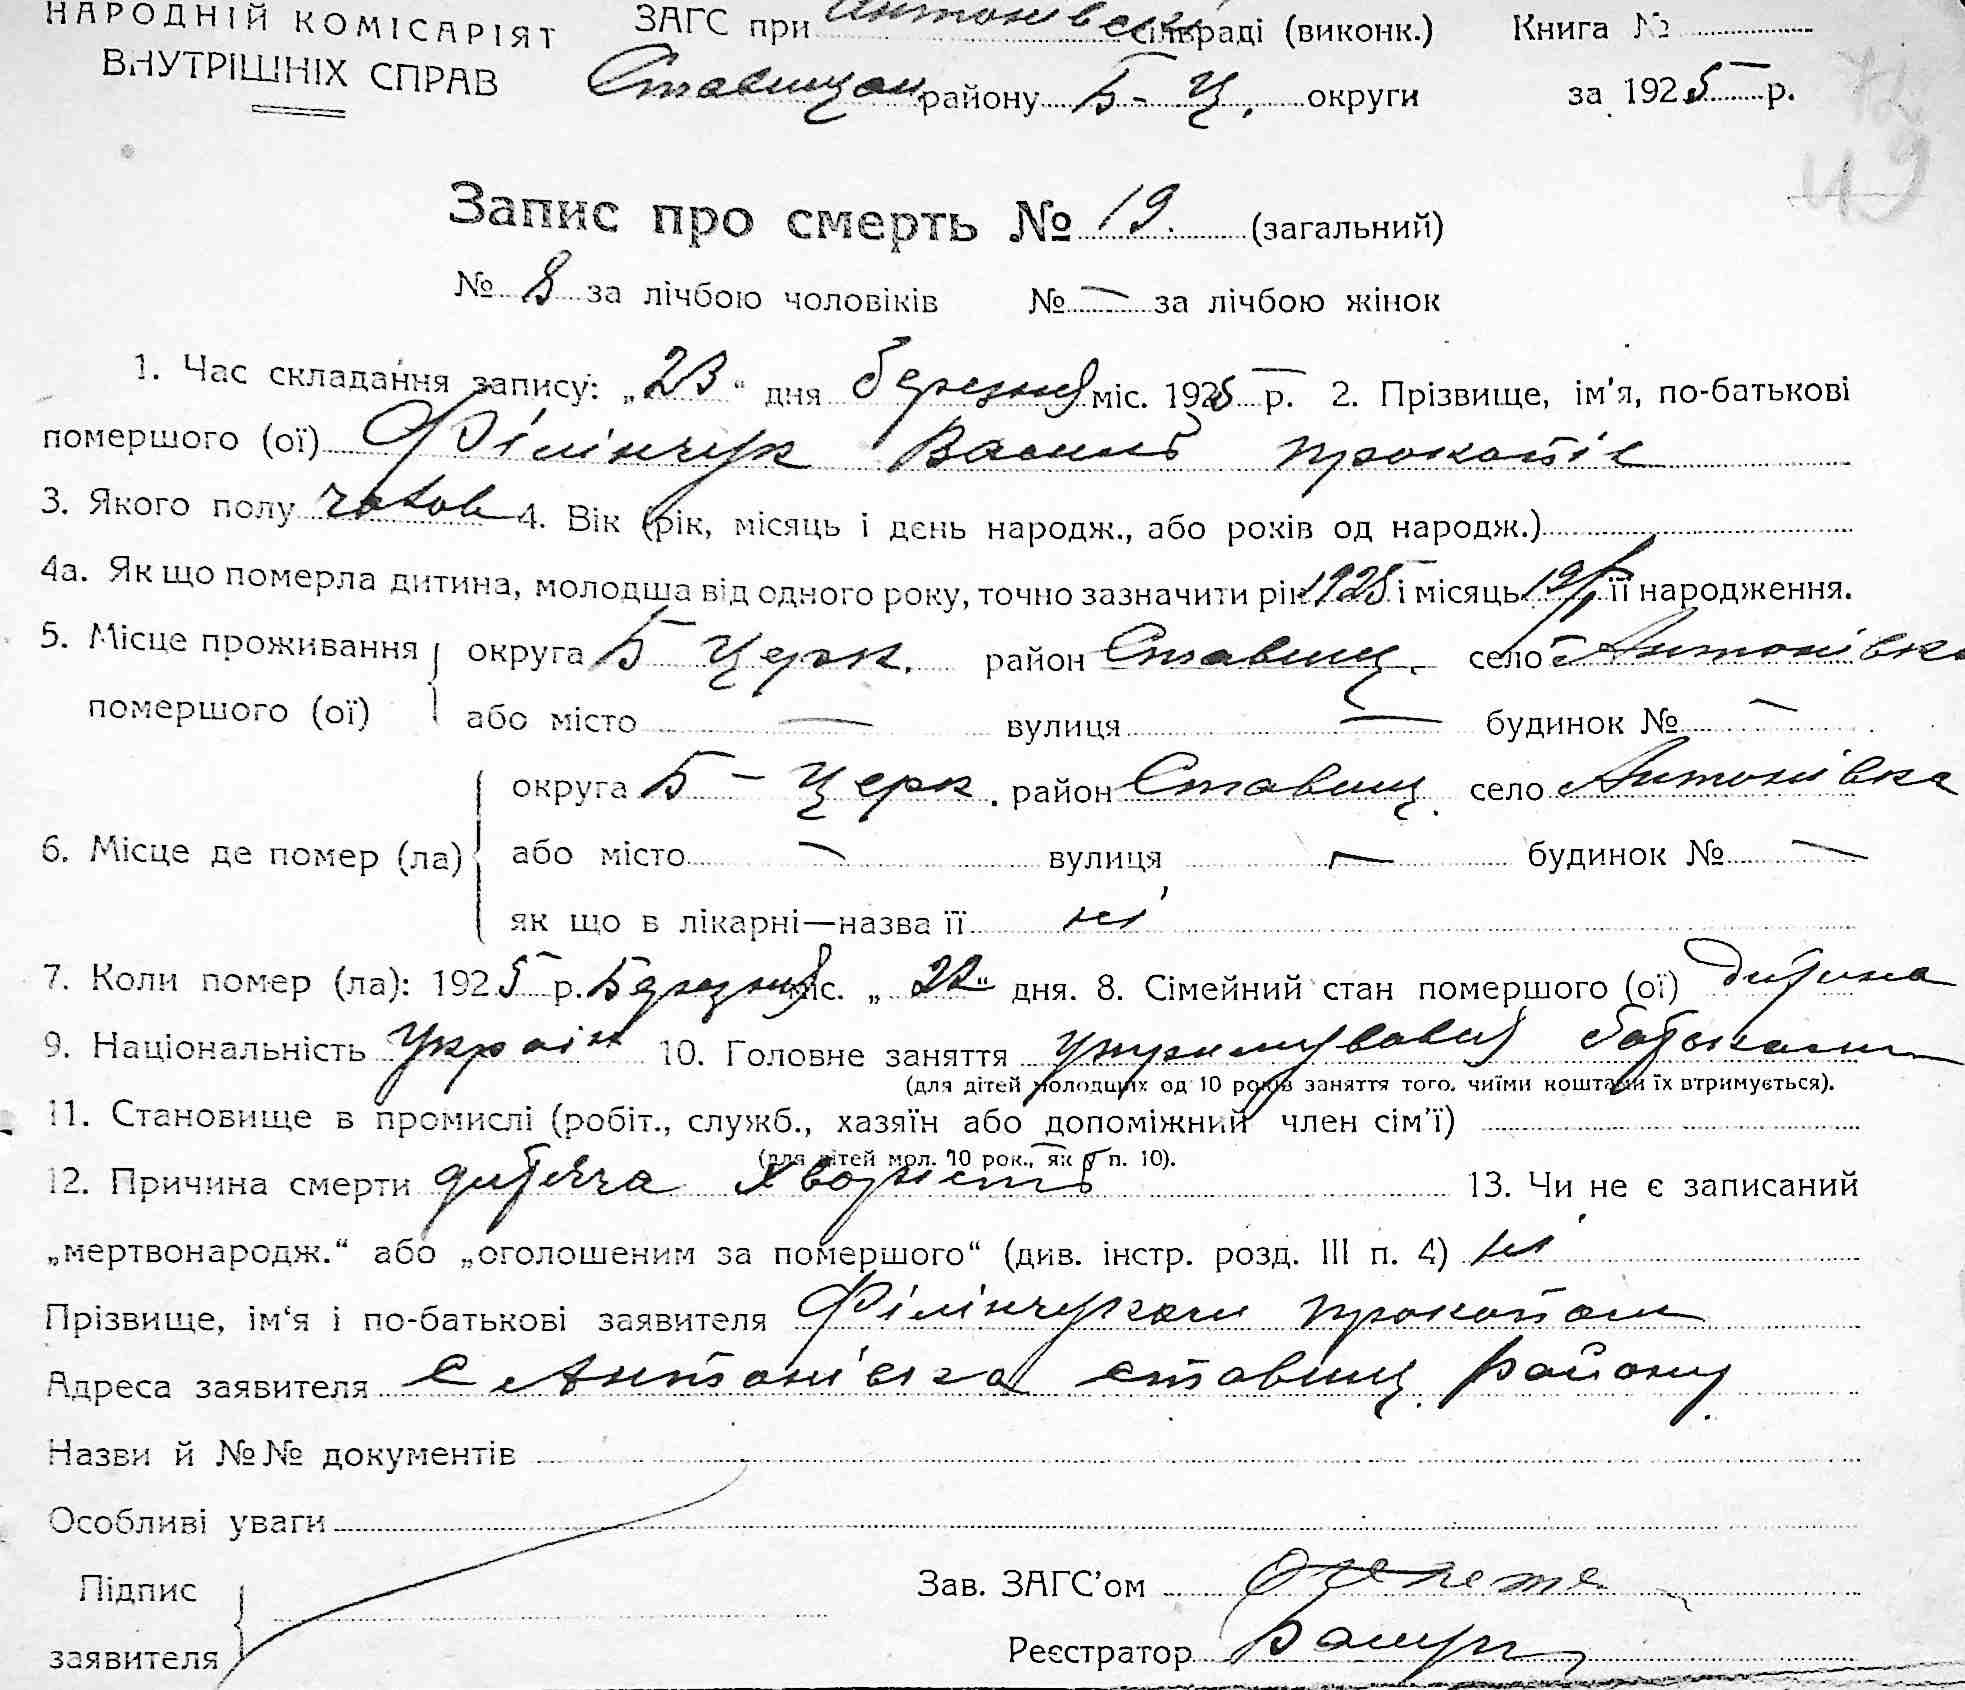 НАРОДНІЙ КОМІСАРІЯТ ЗАГС при Антонівск сільраді (виконк.) Книга №
ВНУТРІШНІХ СПРАВ Ставищан району Б-Ц. округи за 1925 р.
49
Запис про смерть № 19. (загальний)
№ 8 за лічбою чоловіків № — за лічбою жінок
1. Час складання запису: „23“ дня березня міс. 1925 р. 2. Прізвище, ім'я, по-батькові
помершого (ої) Філінчук Василь прокопів
3. Якого полу чолов 4. Вік (рік, місяць і день народж., або років од народж.)
4а. Як що померла дитина, молодша від одного року, точно зазначити рік 1925 і місяць 19/I її народження.
5. Місце проживання округа Б Церк. район Ставищ. село Антонівка
помершого (ої) або місто — вулиця — будинок № —
округа Б – Церк. район Ставищ. село Антонівка
6. Місце де помер (ла) або місто — вулиця — будинок № —
як що в лікарні—назва її ні
7. Коли помер (ла): 1925 р. Березня міс. „22“ дня. 8. Сімейний стан помершого (ої) дитина
9. Національність Україн 10. Головне заняття утримувався батьками
(для дітей молодших од 10 років заняття того, чиїми коштами їх втримується).
11. Становище в промислі (робіт., служб., хазяїн або допоміжний член сім'ї)
(для дітей мол. 10 рок., як в п. 10).
12. Причина смерти дитяча хворість 13. Чи не є записаний
„мертвонародж.“ або „оголошеним за помершого“ (див. інстр. розд. III п. 4) ні
Прізвище, ім‘я і по-батькові заявителя Філінчуком прокопом
Адреса заявителя с Антонівка ставищ. району
Назви й №№ документів
Особливі уваги
Підпис Зав. ЗАГС'ом
заявителя Реєстратор